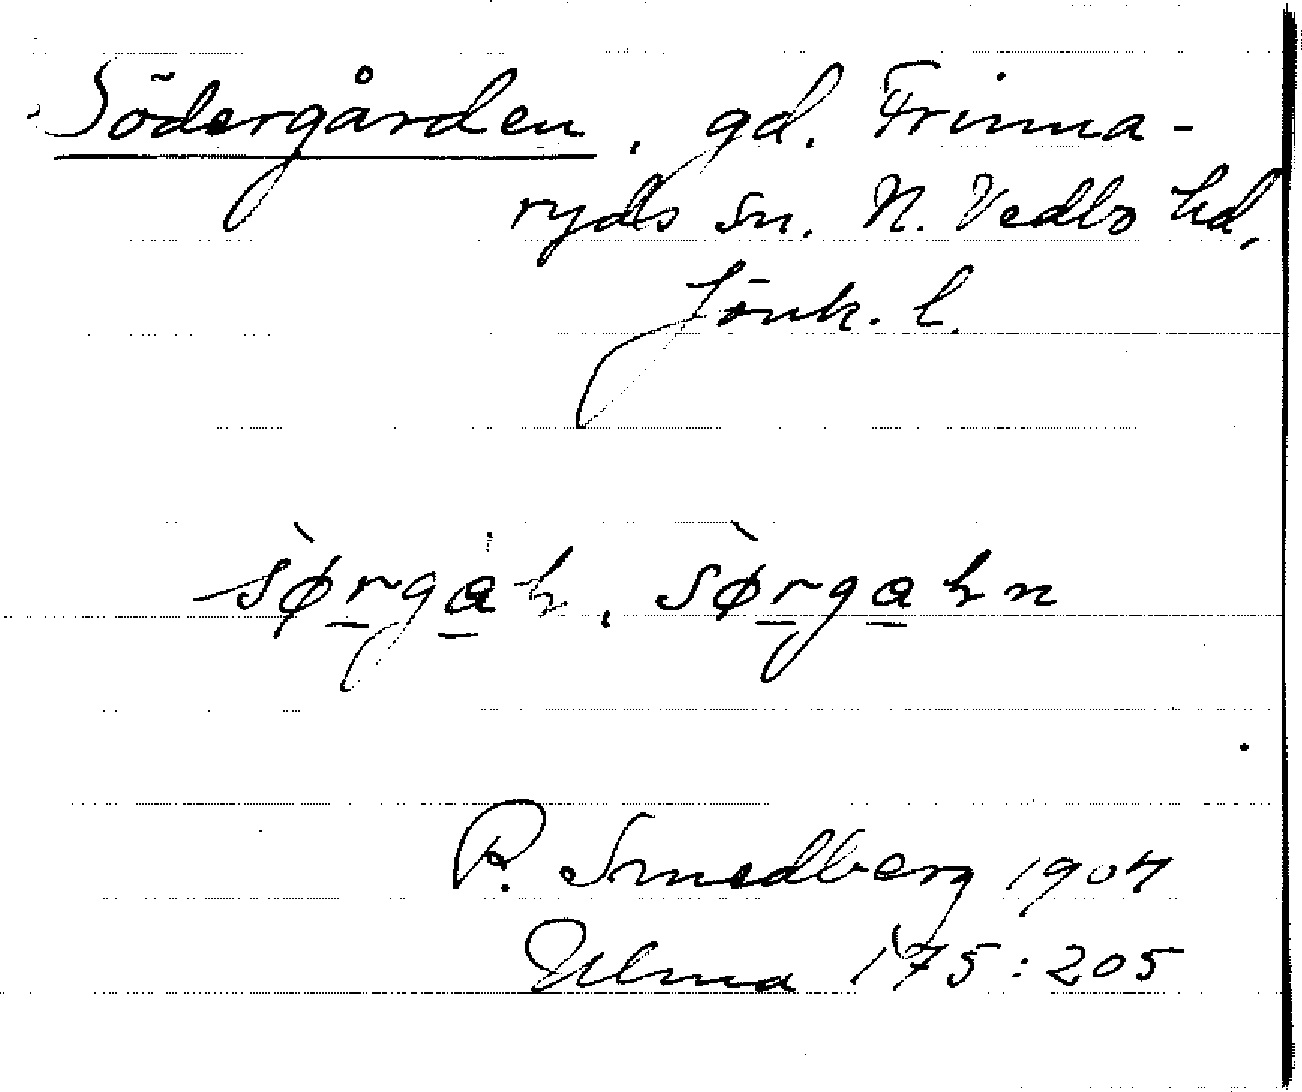 Södergården, gd. Frinna-
ryds sn. N. Vedbo hd,
Jönk. l.
sø̀rgạh, sø̀rgahn
P. Smedberg 1904
Ulma 175:205